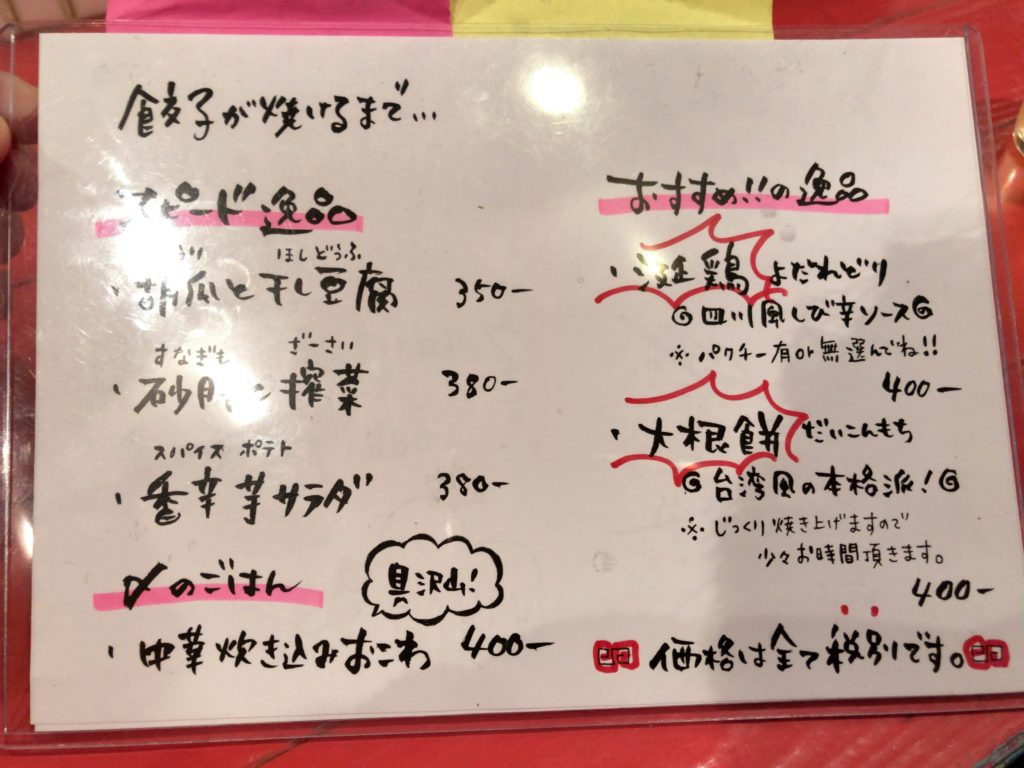 餃子が焼けるまで...
スピード逸品
うり ほしどうふ
・胡瓜と干し豆腐 350-
すなぎも ざーさい
・砂肝と搾菜 380-
スパイス ポテト
・香辛芋サラダ 380-
〆のごはん
具沢山!
・中華炊き込みおこわ 400-
おすすめ!!の逸品
・涎鶏 よだれどり
四川風しび辛ソース
※パクチー有or無選んでね!!
400-
・大根餅 だいこんもち
台湾風の本格派!
※じっくり焼き上げますので
少々お時間頂きます。
400-
価格は全て税別です。